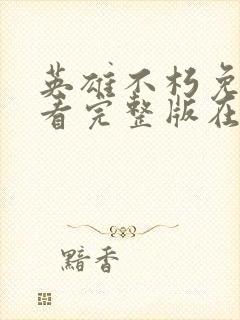 英雄不朽免
看完整版在
黯香